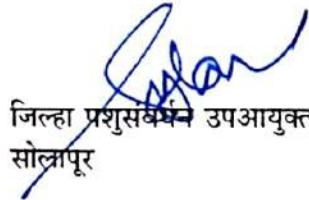 जिल्हा पशुसंवर्धन उपआयुक्त
सोलापूर